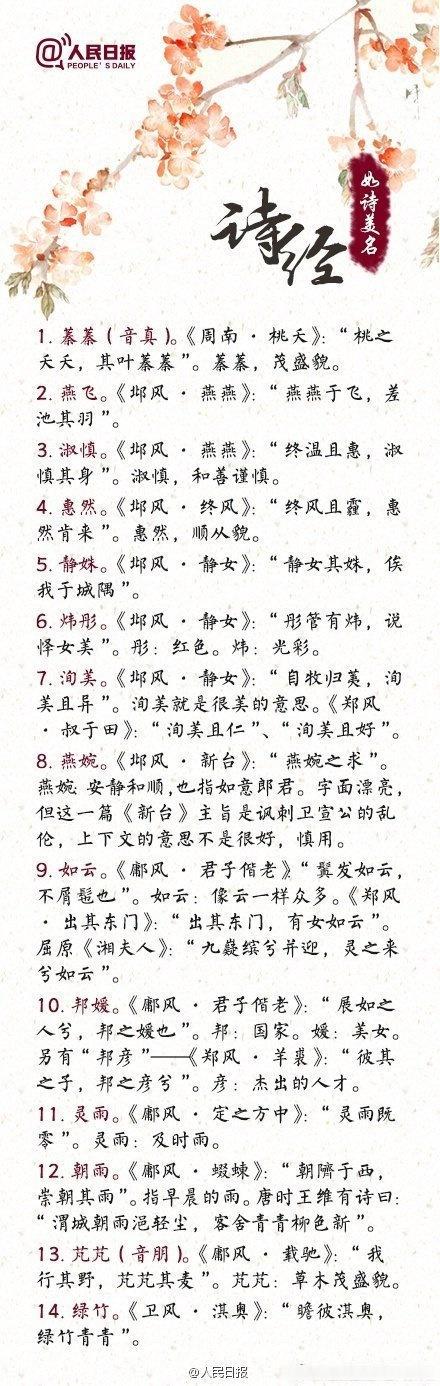 @人民日报
PEOPLE'S DAILY
诗经
如诗美名
1. 蓁蓁（音真）。《周南·桃夭》：“桃之
夭夭，其叶蓁蓁”。蓁蓁，茂盛貌。
2. 燕飞。《邶风·燕燕》：“燕燕于飞，差
池其羽”。
3. 淑慎。《邶风·燕燕》：“终温且惠，淑
慎其身”。淑慎，和善谨慎。
4. 惠然。《邶风·终风》：“终风且霾，惠
然肯来”。惠然，顺从貌。
5. 静姝。《邶风·静女》：“静女其姝，俟
我于城隅”。
6. 炜彤。《邶风·静女》：“彤管有炜，说
怿女美”。彤：红色。炜：光彩。
7. 洵美。《邶风·静女》：“自牧归荑，洵
美且异”。洵美就是很美的意思。《郑风
·叔于田》：“洵美且仁”、“洵美且好”。
8. 燕婉。《邶风·新台》：“燕婉之求”。
燕婉：安静和顺，也指如意郎君。字面漂亮，
但这一篇《新台》主旨是讽刺卫宣公的乱
伦，上下文的意思不是很好，慎用。
9. 如云。《鄘风·君子偕老》：“鬒发如云，
不屑髢也”。如云：像云一样众多。《郑风
·出其东门》：“出其东门，有女如云”。
屈原《湘夫人》：“九嶷缤兮并迎，灵之来
兮如云”。
10. 邦媛。《鄘风·君子偕老》：“展如之
人兮，邦之媛也”。邦：国家。媛：美女。
另有“邦彦”——《郑风·羊裘》：“彼其
之子，邦之彦兮”。彦：杰出的人才。
11. 灵雨。《鄘风·定之方中》：“灵雨既
零”。灵雨：及时雨。
12. 朝雨。《鄘风·蝃蝀》：“朝隮于西，
崇朝其雨”。指早晨的雨。唐时王维有诗曰：
“渭城朝雨浥轻尘，客舍青青柳色新”。
13. 芃芃（音朋）。《鄘风·载驰》：“我
行其野，芃芃其麦”。芃芃：草木茂盛貌。
14. 绿竹。《卫风·淇奥》：“瞻彼淇奥，
绿竹青青”。
@人民日报